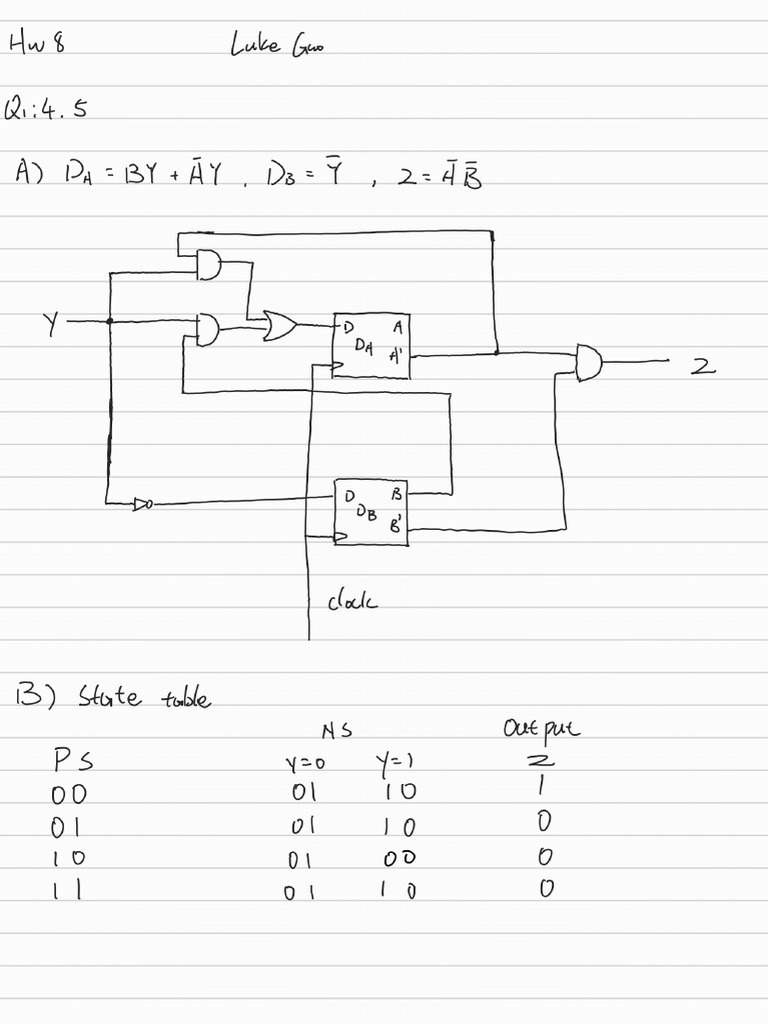 HW 8 Luke Guo
Q1: 4.5
A) DA = BY + ĀY , DB = Ȳ , Z = ĀB̄
Y
D A
DA
A'
Z
D B
DB
B'
clock
B) State table
NS Output
PS Y=0 Y=1 Z
00 01 10 1
01 01 10 0
10 01 00 0
11 01 10 0